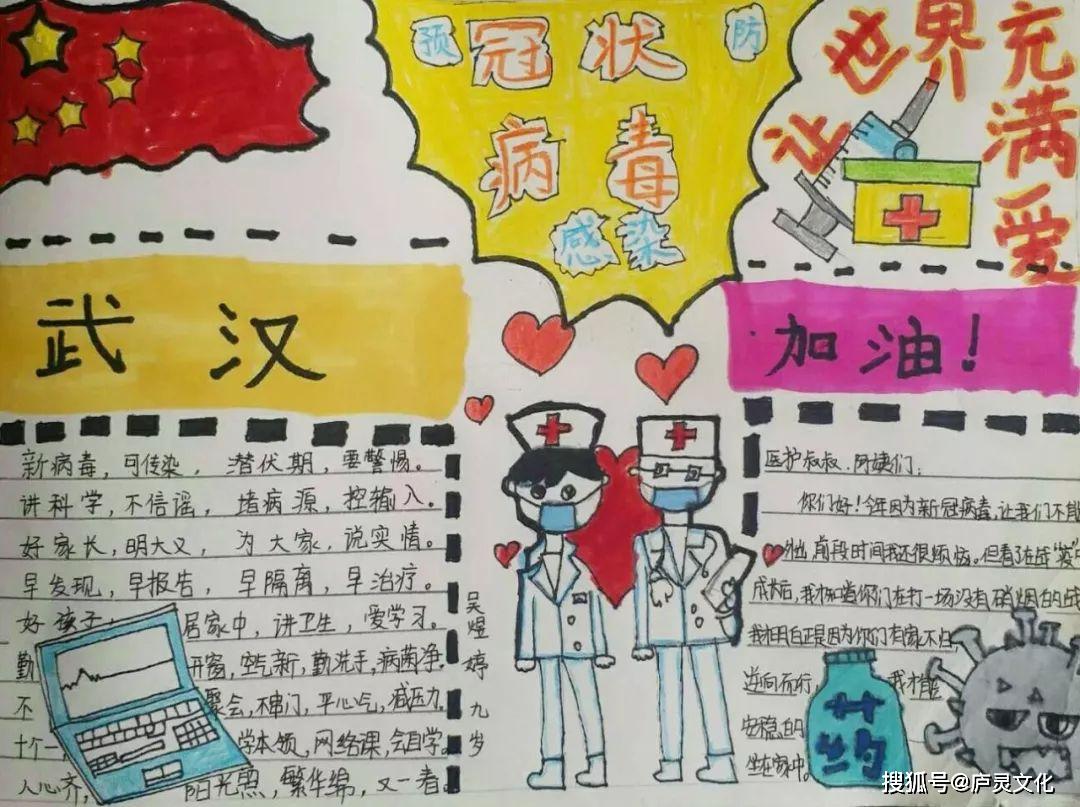 预 冠 状 防
病 毒
感 染
让世界充满爱
武 汉
加 油！
新病毒，可传染，潜伏期，要警惕。
讲科学，不信谣，堵病源，控输入。
好家长，明大义，为大家，说实情。
早发现，早报告，早隔离，早治疗。
好孩子 居家中，讲卫生，爱学习。
勤 开窗，空气新，勤洗手，病菌净。
不 聚会，不串门，平心气，减压力。
十个一 学本领，网络课，会自学。
人心齐， 阳光照，繁华绵，又一春。
吴煜婷 九岁
医护叔叔、阿姨们：
你们好！今年因为新冠病毒，让我们不能
前段时间我还很烦恼。但看了
成片后，我知道你们在打一场没有硝烟的战
我相白正是因为你们有家不归
逆向而行， 我才能
安稳的
坐在家中。
药
搜狐号@庐灵文化